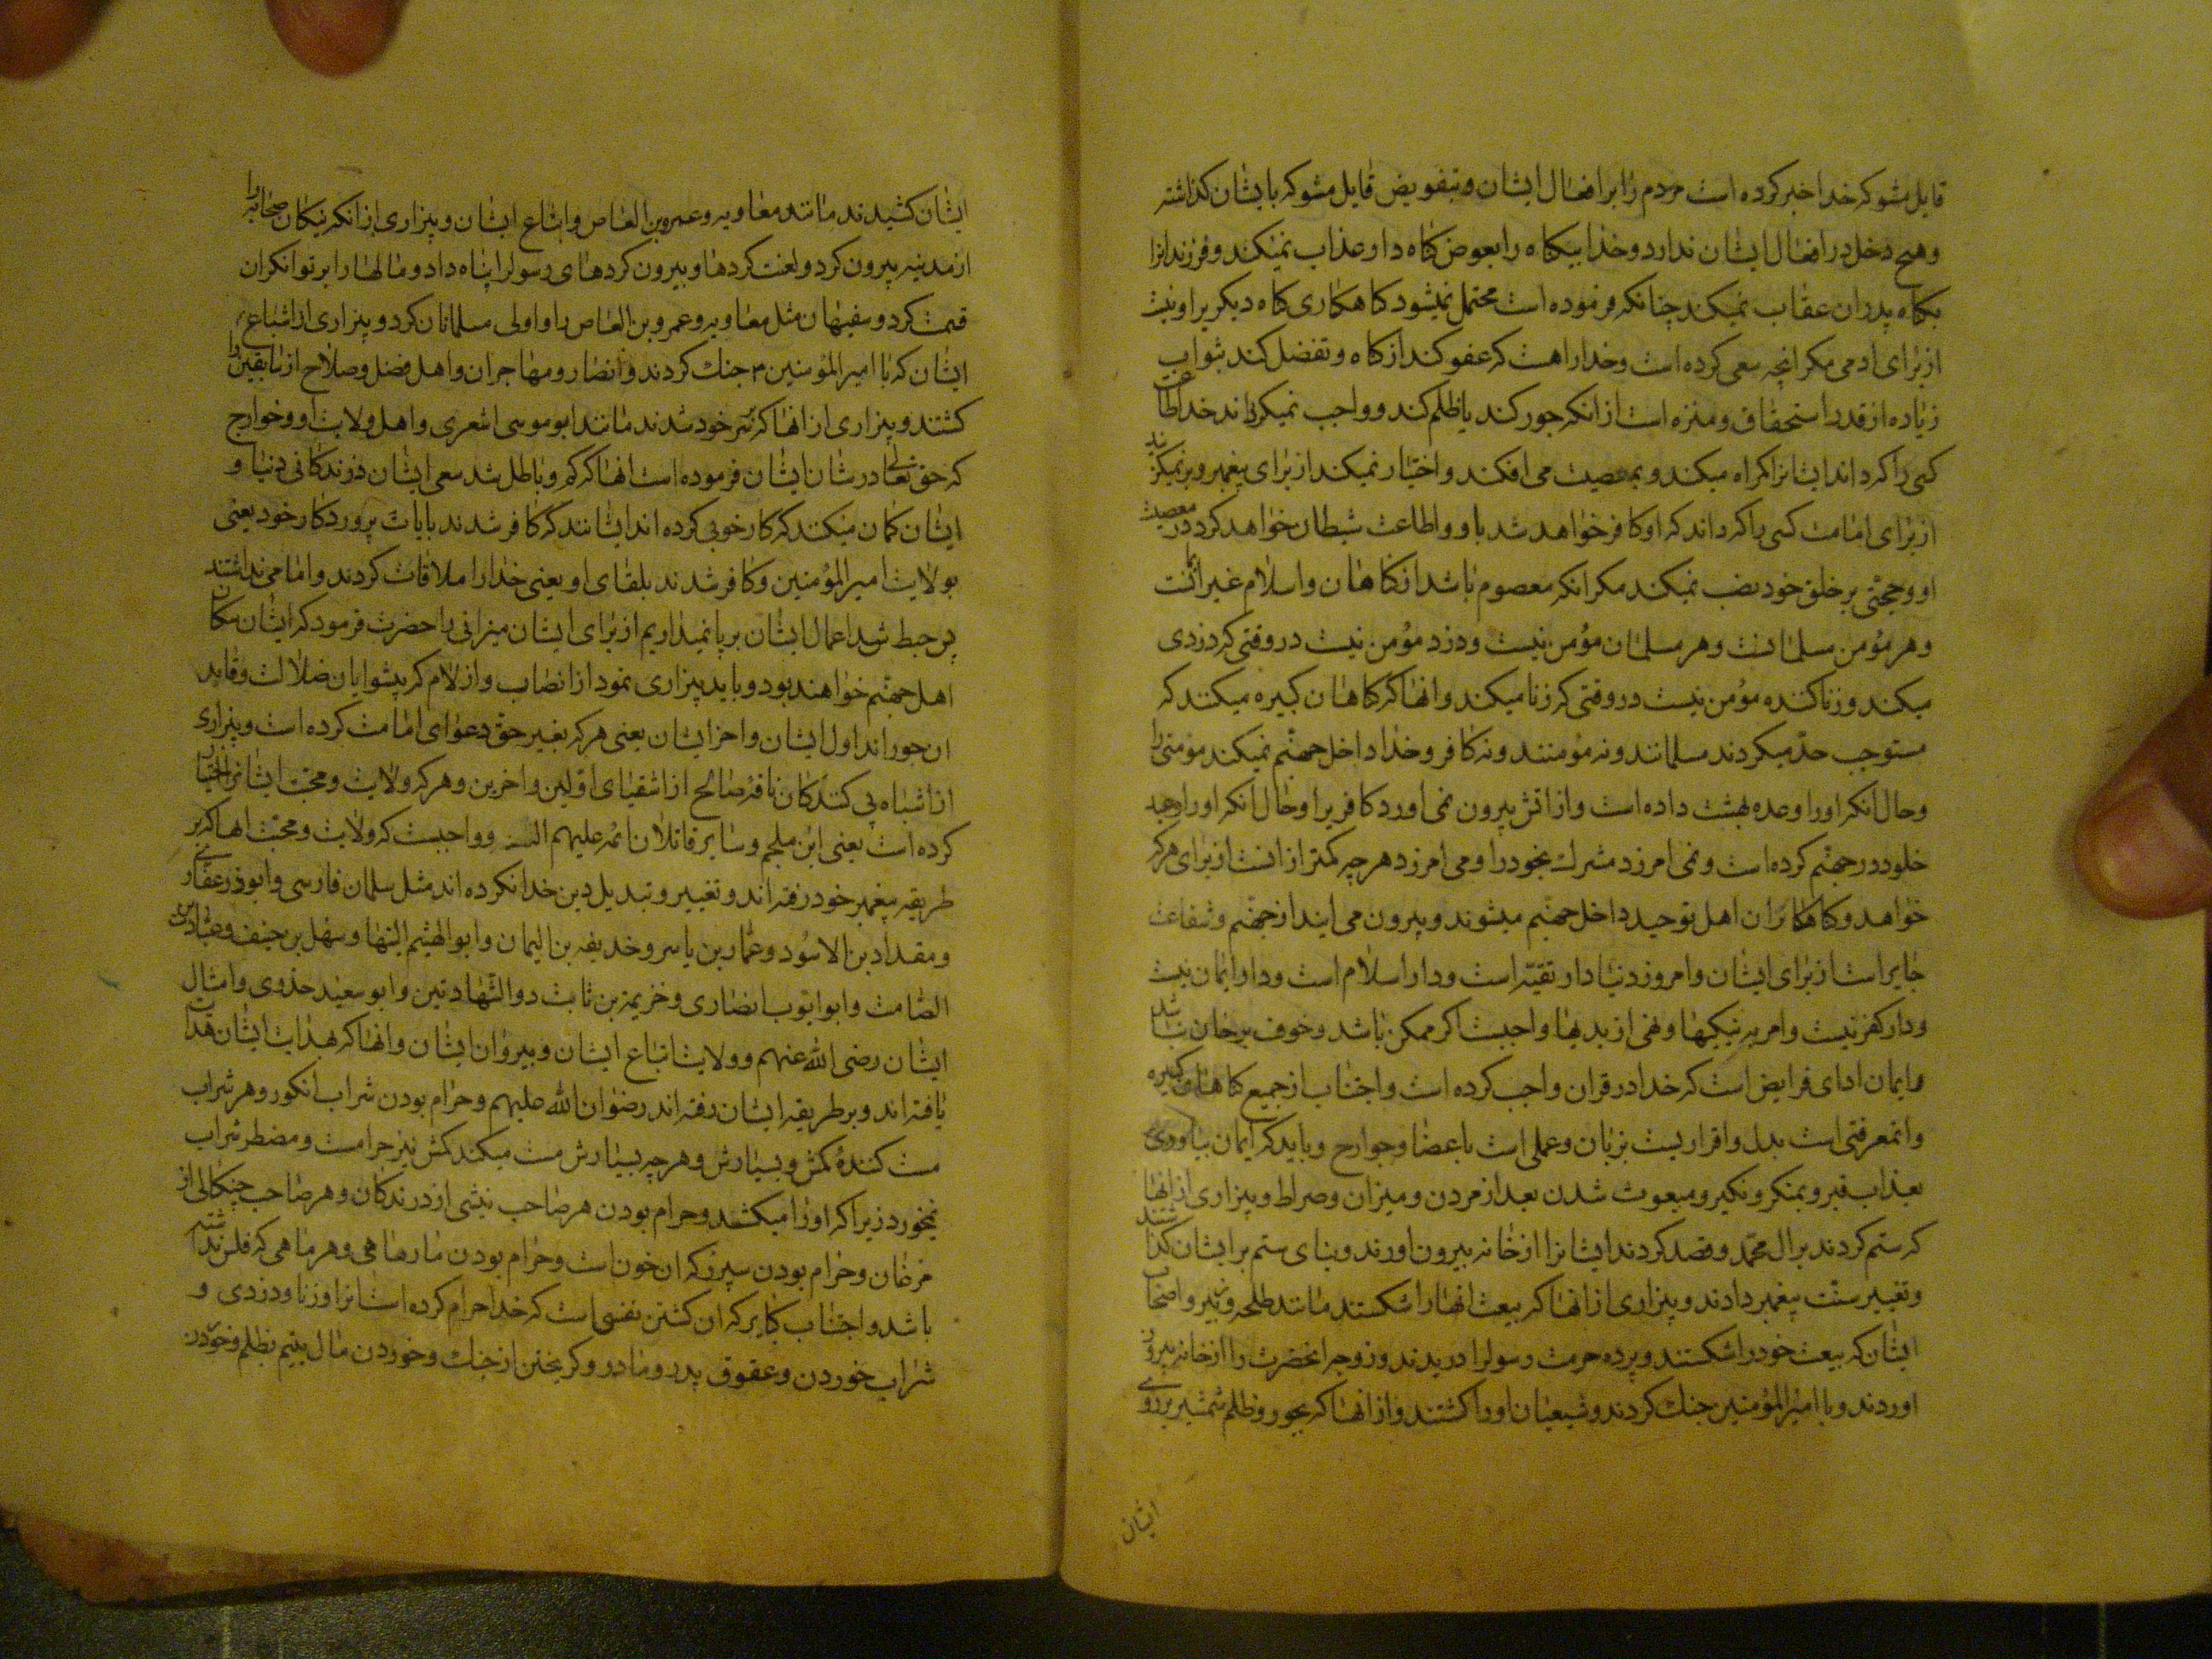 قایل مشو که خدا خبر کرده است مردم را بر افعال ایشان و بتفویض قایل مشو که بایشان کذاشته
وهیچ دخل در افعال ایشان ندارد و خدا بیکناه را بعوض کناه دار عذاب نمیکند و فرزندانرا
بکناه پدران عقاب نمیکند چنانکه فرموده است محتمل نمیشود کناهکاری کناه دیکریرا و نیست
از برای ادمی مکر انچه سعی کرده است و خدا را هست که عفو کند از کناه و تفضل کند بثواب
زیاده از قدر استحقاق و منزه است از انکه جور کند یا ظلم کند و واجب نمیکرداند خدا اطاعت
کسی را که داند ایشانرا کمراه میکند و بمعصیت می افکند و اختیار نمیکند از برای پیغمبر و برنمیکزیند
از برای امامت کسی را که داند که او کافر خواهد شد باو و اطاعت شیطان خواهد کرد در معصیت
او و حجتی بر خلق خود نصب نمیکند مکر انکه معصوم باشد از کناهان و اسلام غیر ایمانست
وهر مؤمن مسلمانست وهر مسلمان مؤمن نیست ودزد مؤمن نیست در وقتی که دزدی
میکند و زنا کننده مؤمن نیست در وقتی که زنا میکند وانها که کناهان کبیره میکنند که
مستوجب حدّ میکردند مسلمانند و نه مؤمنند و نه کافر و خدا داخل جهنّم نمیکند مؤمنی را
وحال انکه او را وعده بهشت داده است و از اتش بیرون نمی اورد کافریرا وحال انکه او را وعید
خلود در جهنّم کرده است ونمی امرزد مشرک بخود را و می امرزد هر چه کمتر از انست از برای هر که
خواهد و کناهکاران اهل توحید داخل جهنّم میشوند و بیرون می ایند از جهنّم و شفاعت
جایز است از برای ایشان و امروز دنیا دار تقیّه است و دار اسلام است و دار ایمان نیست
و دار کفر نیست و امر به نیکیها و نهی از بدیها واجبست اکر ممکن باشد و خوف بر جان نباشد
و ایمان ادای فرایض است که خدا در قران واجب کرده است و اجتناب از جمیع کناهان کبیره
و ان معرفتی است بدل و اقراریست بزبان و عملی است باعضا و جوارح و باید که ایمان بیاوری
بعذاب قبر و بمنکر و نکیر و مبعوث شدن بعد از مردن و میزان و صراط و بیزاری از انها
که ستم کردند بر ال محمّد و قصد کردند ایشانرا از خانه بیرون اورند و بنای ستم بر ایشان کذاشتند
و تغییر سنّت پیغمبر دادند و بیزاری از انها که بیعت انها را شکستند مانند طلحه و زبیر و اصحاب
ایشان که بیعت خود را شکستند و پرده حرمت رسولرا دریدند و زوجه انحضرت را از خانه بیرون
اوردند و با امیر المؤمنین جنک کردند و شیعیان او را کشتند و از انها که بجور و ظلم شمشیر بر روی
ایشان
ایشان کشیدند مانند معاویه و عمرو بن العاص و اتباع ایشان و بیزاری از انکه نیکان صحابه را
از مدینه بیرون کرد و لعنت کردها و بیرون کردهای رسولرا پناه داد و مالها را بر توانکران
قسمت کرد و سفیهان مثل معاویه و عمرو بن العاص را والی مسلمانان کرد و بیزاری از اشیاع
ایشان که با امیر المؤمنین ۴ جنک کردند و انصار و مهاجران و اهل فضل و صلاح از سابقین را
کشتند و بیزاری از انها که سر خود شدند مانند ابو موسی اشعری و اهل ولایت او و خوارج
که حق تعالی در شان ایشان فرموده است انها که کم و باطل شد سعی ایشان در زندکانی دنیا و
ایشان کمان میکنند که کار خوبی کرده اند ایشانند که کافر شدند بایات پروردکار خود یعنی
بولایت امیر المؤمنین و کافر شدند بلقای او یعنی خدا را ملاقات کردند و امامی نداشتند
پس حبط شد اعمال ایشان بر پا نمیداریم از برای ایشان میزانی را حضرت فرمود که ایشان سکان
اهل جهنّم خواهند بود و باید بیزاری نمود از انصاب و ازلام که پیشوایان ضلالت و قاید
ان جوراند اول ایشان و اخر ایشان یعنی هر که بغیر حق دعوای امامت کرده است و بیزاری
از اشباه پی کنندکان ناقهٔ صالح از اشقیای اوّلین و اخرین و هر که ولایت و محبّت ایشانرا اختیار
کرده است یعنی ابن ملجم و سایر قاتلان ائمه علیهم السلام و واجبست که ولایت و محبّت انها که بر
طریقه پیغمبر خود رفته اند و تغییر و تبدیل دین خدا نکرده اند مثل سلمان فارسی و ابوذر غفاری
و مقداد بن الاسود و عمّار بن یاسر و حذیفه بن الیمان و ابو الهیثم التیهان و سهل بن حنیف و عبادة بن
الصّامت و ابو ایّوب انصاری و خزیمة بن ثابت ذو الشّهادتین و ابو سعید خدری و امثال
ایشان رضی الله عنهم و ولایت اتباع ایشان و پیروان ایشان و انها که بهدایت ایشان هدایت
یافته اند و بر طریقه ایشان رفته اند رضوان الله علیهم و حرام بودن شراب انکور و هر شراب
مست کنندهٔ کمش و بسیارش و هر چه بسیارش مست میکند کمش نیز حرامست و مضطر شراب
نمیخورد زیرا که او را میکشد و حرام بودن هر صاحب نیشی از درندکان و هر صاحب چنکالی از
مرغان و حرام بودن سپرز که ان خون است و حرام بودن مارماهی و هر ماهی که فلس نداشته
باشد و اجتناب کبایر که ان کشتن نفسی است که خدا حرام کرده است انرا و زنا و دزدی و
شراب خوردن و عقوق پدر و مادر و کریختن از جنک و خوردن مال یتیم بظلم و خوردن